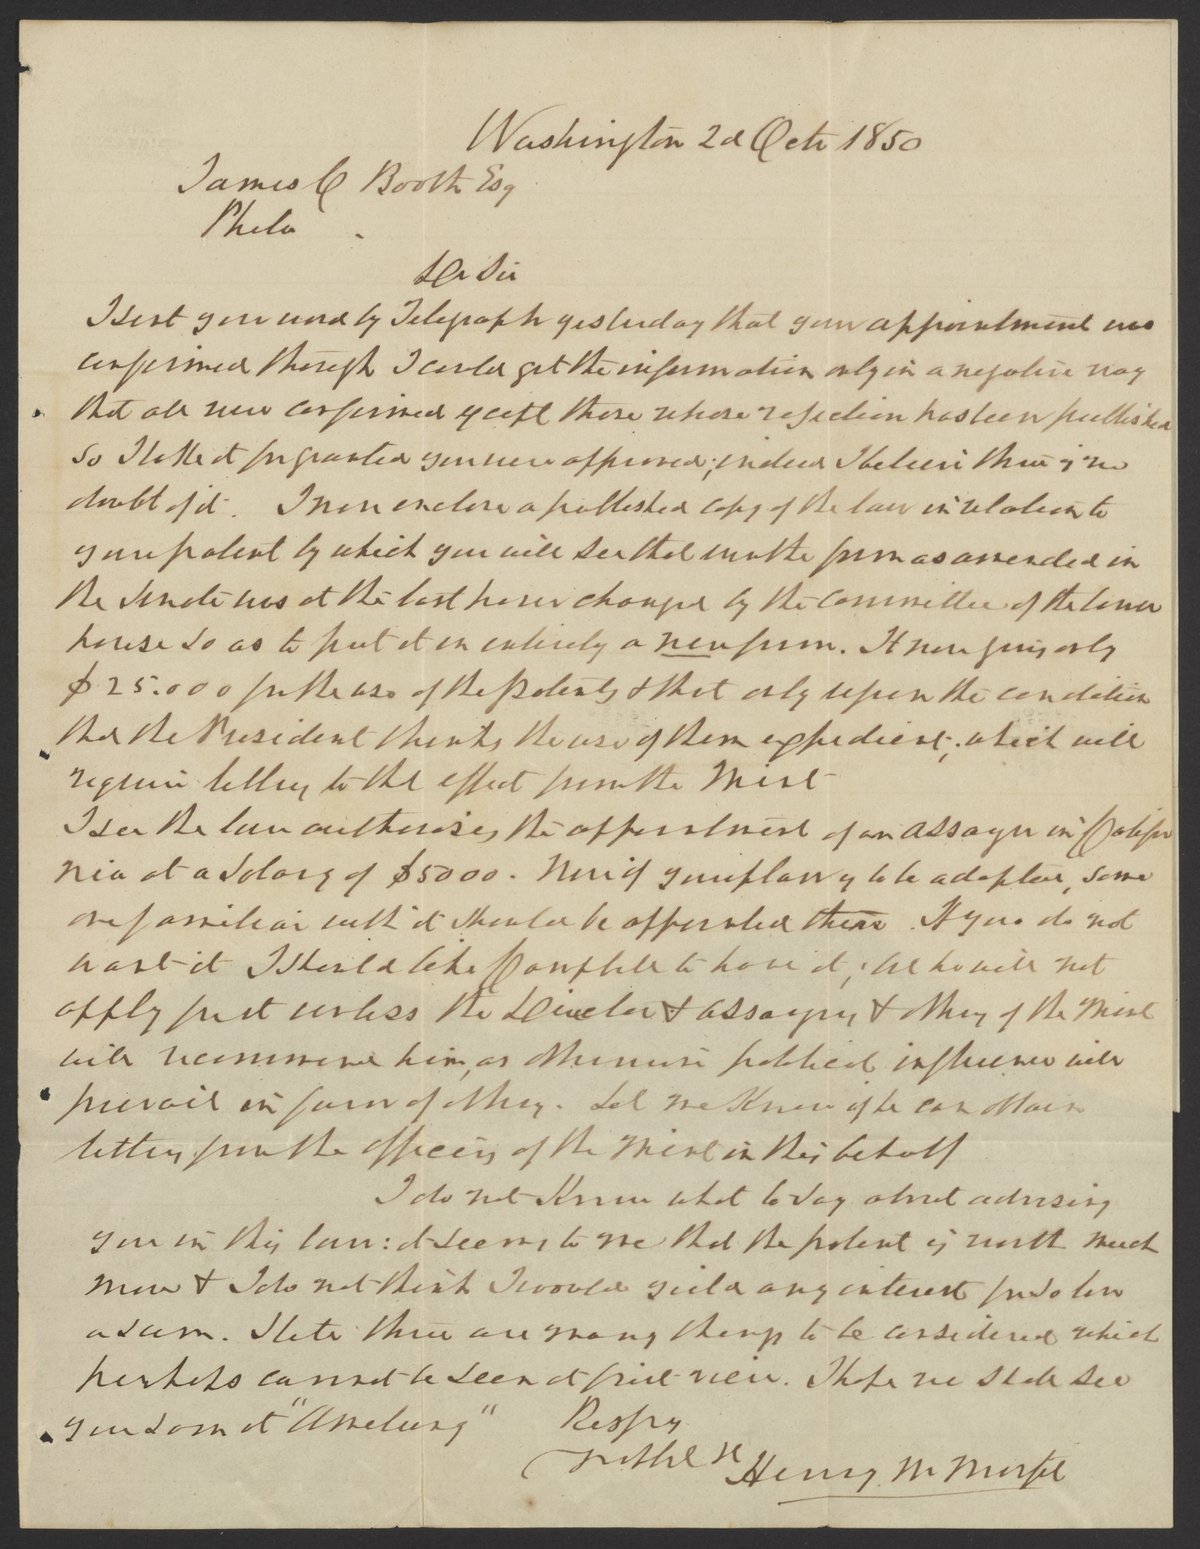 Washington 2d Octr 1850
James C Booth Esq
Phila
Dr Sir
I sent you word by Telegraph yesterday that your appointment was
confirmed though I could get the information only in a negative way
that all were confirmed except those whose rejection has been published
So I take it for granted you were approved; indeed I believe there is no
doubt of it. I now enclose a published copy of the law in relation to
your patent by which you will see that the form as amended in
the Senate was at the last hour changed by the Committee of the lower
house so as to put it in entirely a new form. It now gives only
$25.000 for the use of the Patents & that only upon the condition
that the President thinks the use of them expedient; which will
require letters to that effect from the Mint
I see the law authorises the appointment of an Assayer in Califor
nia at a Salary of $5000. Now if your plan is to be adopted, some
one familiar with it should be appointed there. If you do not
want it I should like Campbell to have it; but he will not
apply for it unless the Director & assayers & others of the Mint
will recommend him, as otherwise political influence will
prevail in favor of others. Let me Know if he can obtain
letters from the officers of the Mint in this behalf
I do not Know what to say about advising
you in this law: it seems to me that the patent is worth much
more & I do not think I would yield any interest for so low
a sum. I take there are many things to be considered which
perhaps cannot be seen at first view. I hope we shall see
you soon at "Amelung"
Respy
Henry M Morfit